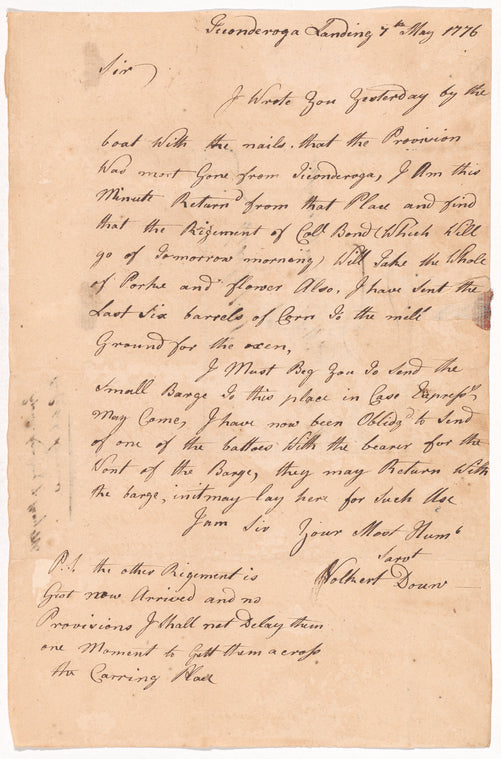 Ticonderoga Landing 7th May 1776
Sir
I Wrote You Yesterday by the
boat With the nails that the Provision
Was most Gone from Ticonderoga, I Am this
Minute Returnd from that Place and find
that the Rigement of Coll Bond (Which Will
go of Tomorrow morning) Will Take the Whole
of Porke and flower Also, I have Sent the
Last Six barrels of Corn To the mill
Ground for the oxen,
I Must Beg You To Send the
Small Barge To this place in Case Express
May Come, I have now been Obligd to Send
of one of the battoes With the bearer for the
Wont of the Barge, they may Return With
the barge, init may lay here for Such Use
I am Sir Your Most Humb
Sarvt
Volkert Douw
P.S. the other Rigement is
Gust now Arrived and no
Provisions I shall not Delay them
one Moment to Gett them across
the Carring Place